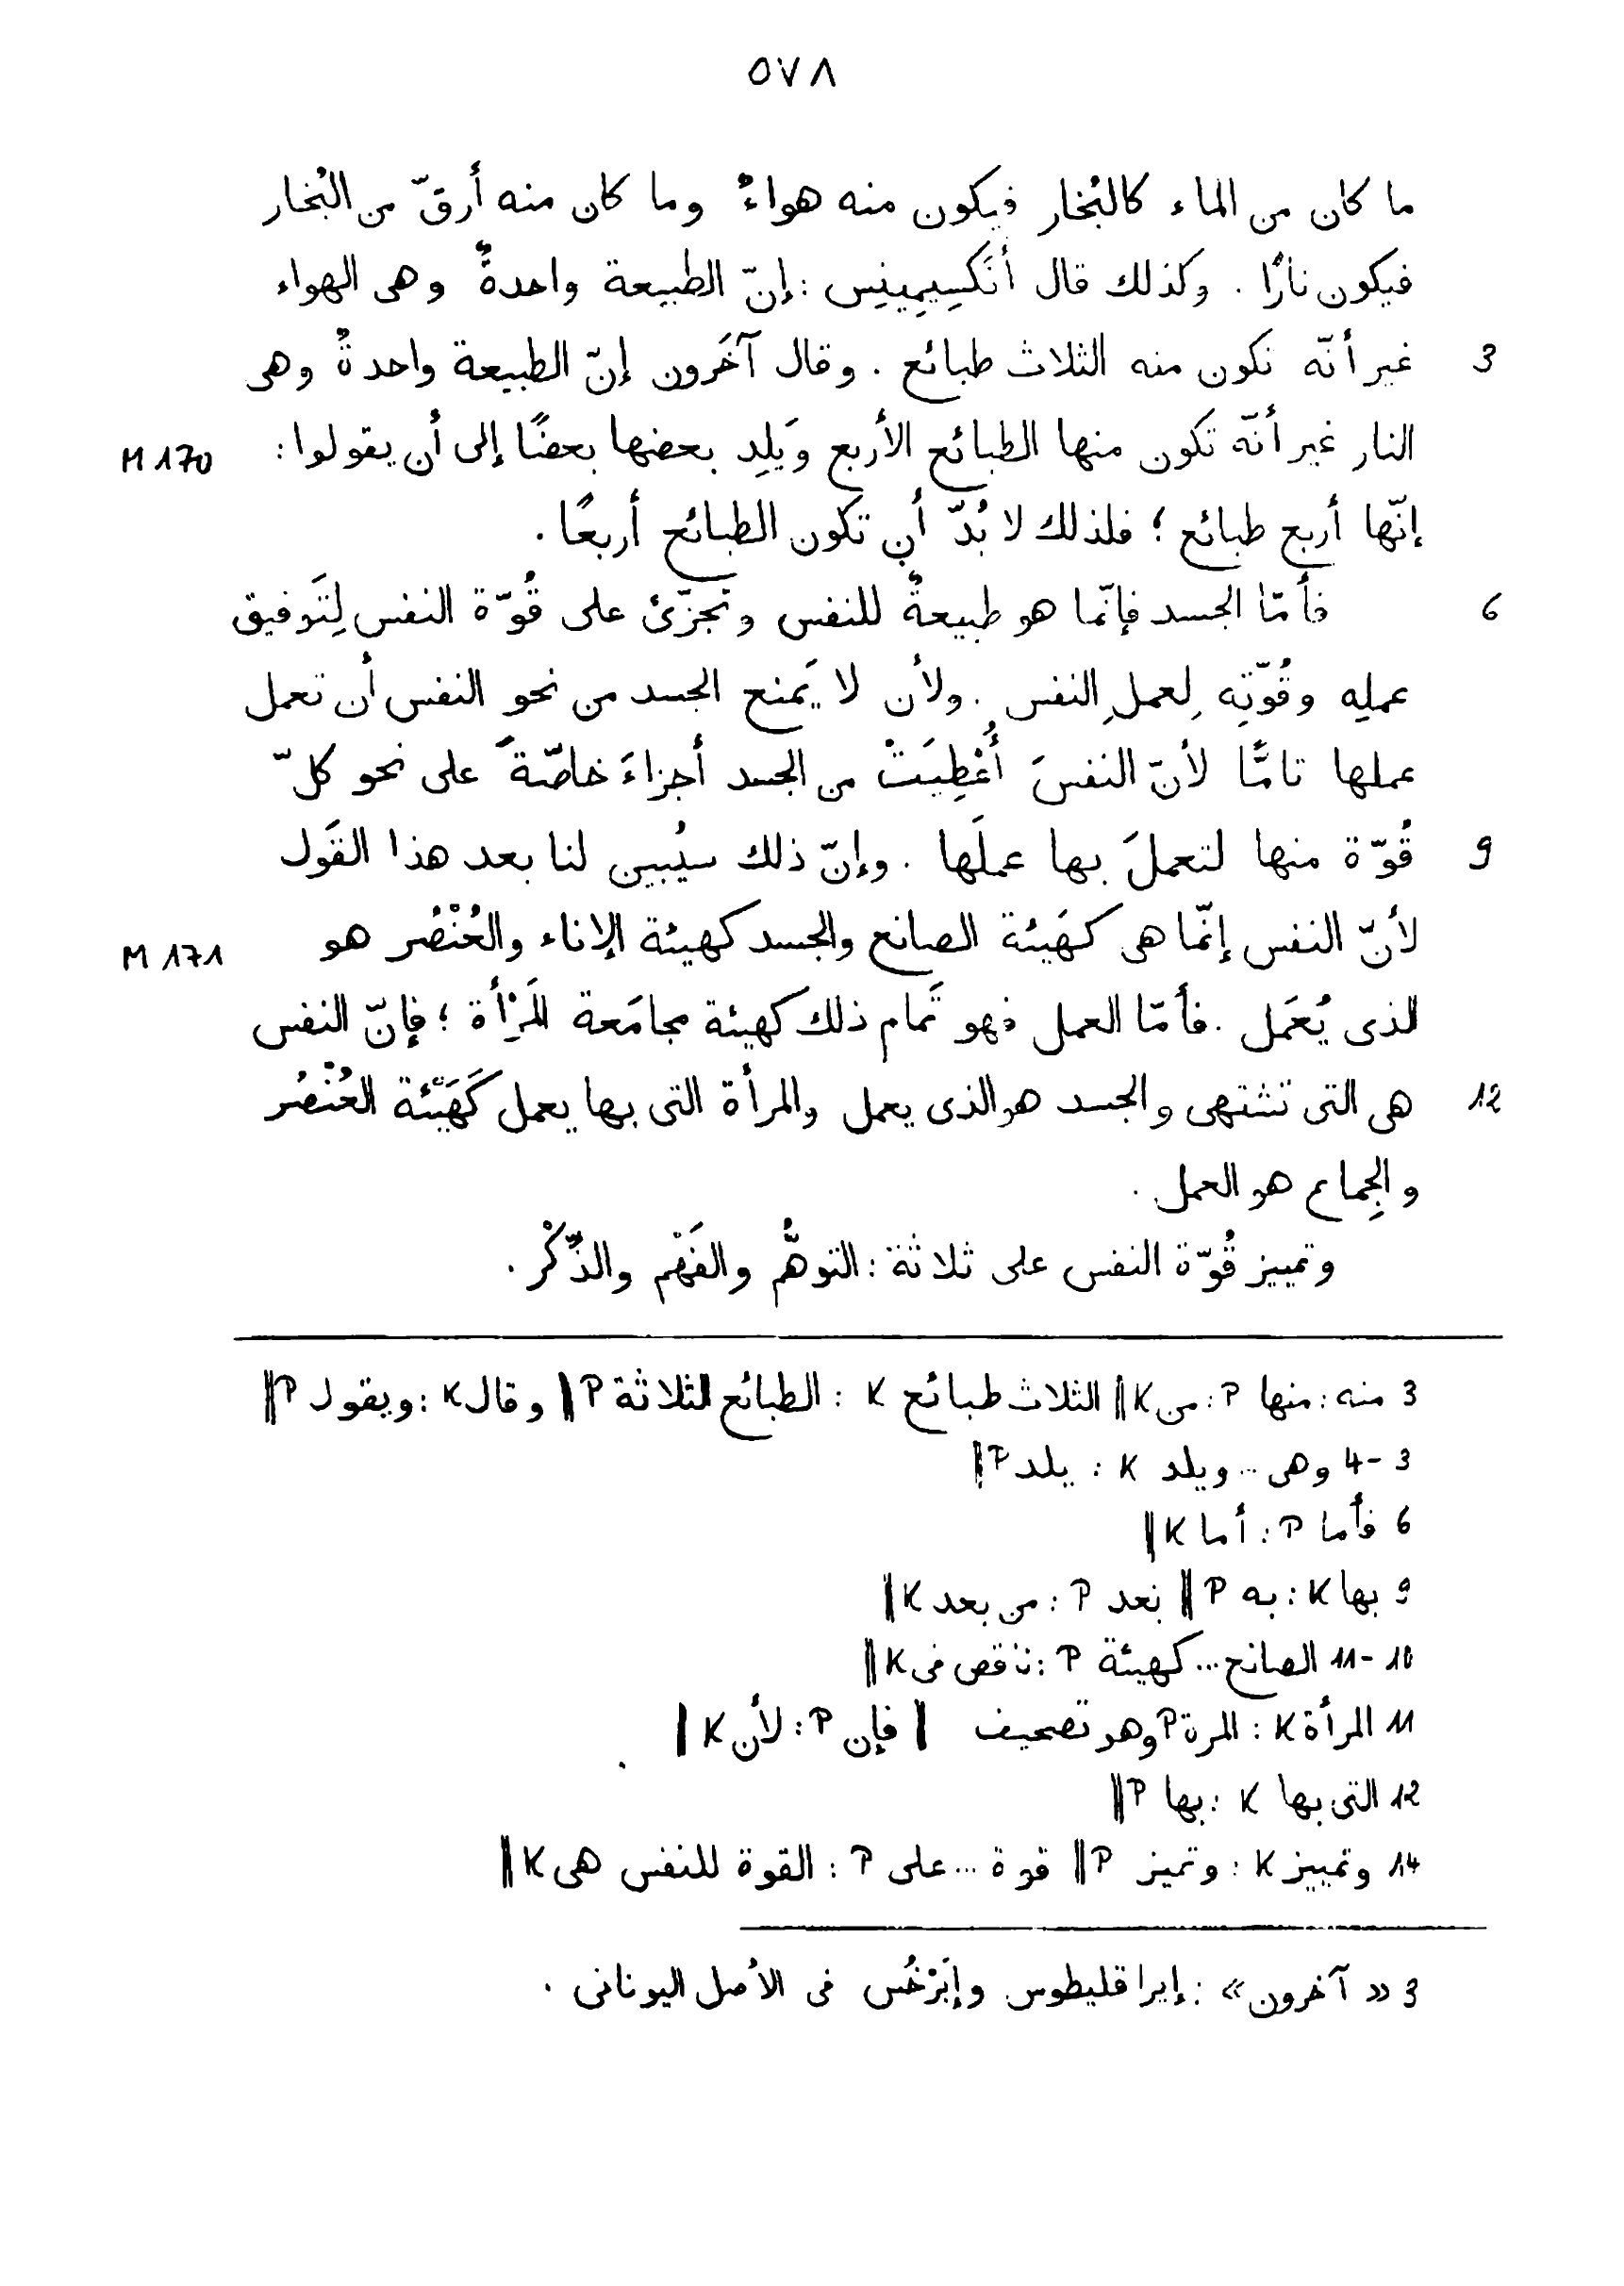 ٥٧٨
ما كان من الماء كالبُخار فيكون منه هواءٌ وما كان منه أرقّ من البُخار
فيكون نارًا . وكذلك قال أنَكسِيمِينِس : إنّ الطبيعة واحدةٌ وهى الهواء
3 غير أنّه تكون منه الثلاث طبائع . وقال آخَرون إنّ الطبيعة واحدةٌ وهى
النار غير أنّه تكون منها الطبائع الأربع وَيَلِد بعضها بعضًا إلى أن يقولوا : M 170
إنّها أربع طبائع ؛ فلذلك لا بُدّ أن تكون الطبائع أربعًا .
6 فأمّا الجسد فإنّما هو طبيعةٌ للنفس وتجزّئ على قُوّة النفس لِتَوفيق
عملِه وقُوّتِه لِعملِ النفس . ولأن لا يَمنع الجسد من نحو النفس أن تعمل
عملها تامًّا لأنّ النفسَ أُعْطِيَتْ من الجسد أجزاءَ خاصّةً على نحو كلّ
9 قُوّة منها لتعملَ بها عملَها . وإنّ ذلك سيُبين لنا بعد هذا القَول
لأنّ النفس إنّما هى كهَيئة الصانع والجسد كهيئة الإناء والعُنْصُر هو M 171
الذى يُعمَل . فأمّا العمل فهو تَمام ذلك كهيئة مجامَعة المَرْأة ؛ فإنّ النفس
12 هى التى تشتهى والجسد هو الذى يعمل والمرأة التى بها يعمل كَهَيْئة العُنْصُر
والجِماع هو العمل .
وتمييز قُوّة النفس على ثلاثة : التوهُّم والفَهْم والذِّكْر .
3 منه : منها P : من K ‖ الثلاث طبائع K : الطبائع الثلاثة P ‖ وقال K : ويقول P ‖
3-4 وهى ... ويلد K : يلد P ‖
6 فأما P : أما K ‖
9 بها K : به P ‖ بعد P : من بعد K ‖
10-11 الصانع ... كهيئة P : ناقص فى K ‖
11 المرأة K : المرة P وهو تصحيف ‖ فإن P : لأن K ‖
12 التى بها K : بها P ‖
14 وتمييز K : وتميز P ‖ قوة ... على P : القوة للنفس هى K ‖
3 « آخرون » : إيراقليطوس وإبَرْخُس فى الأصل اليونانى .